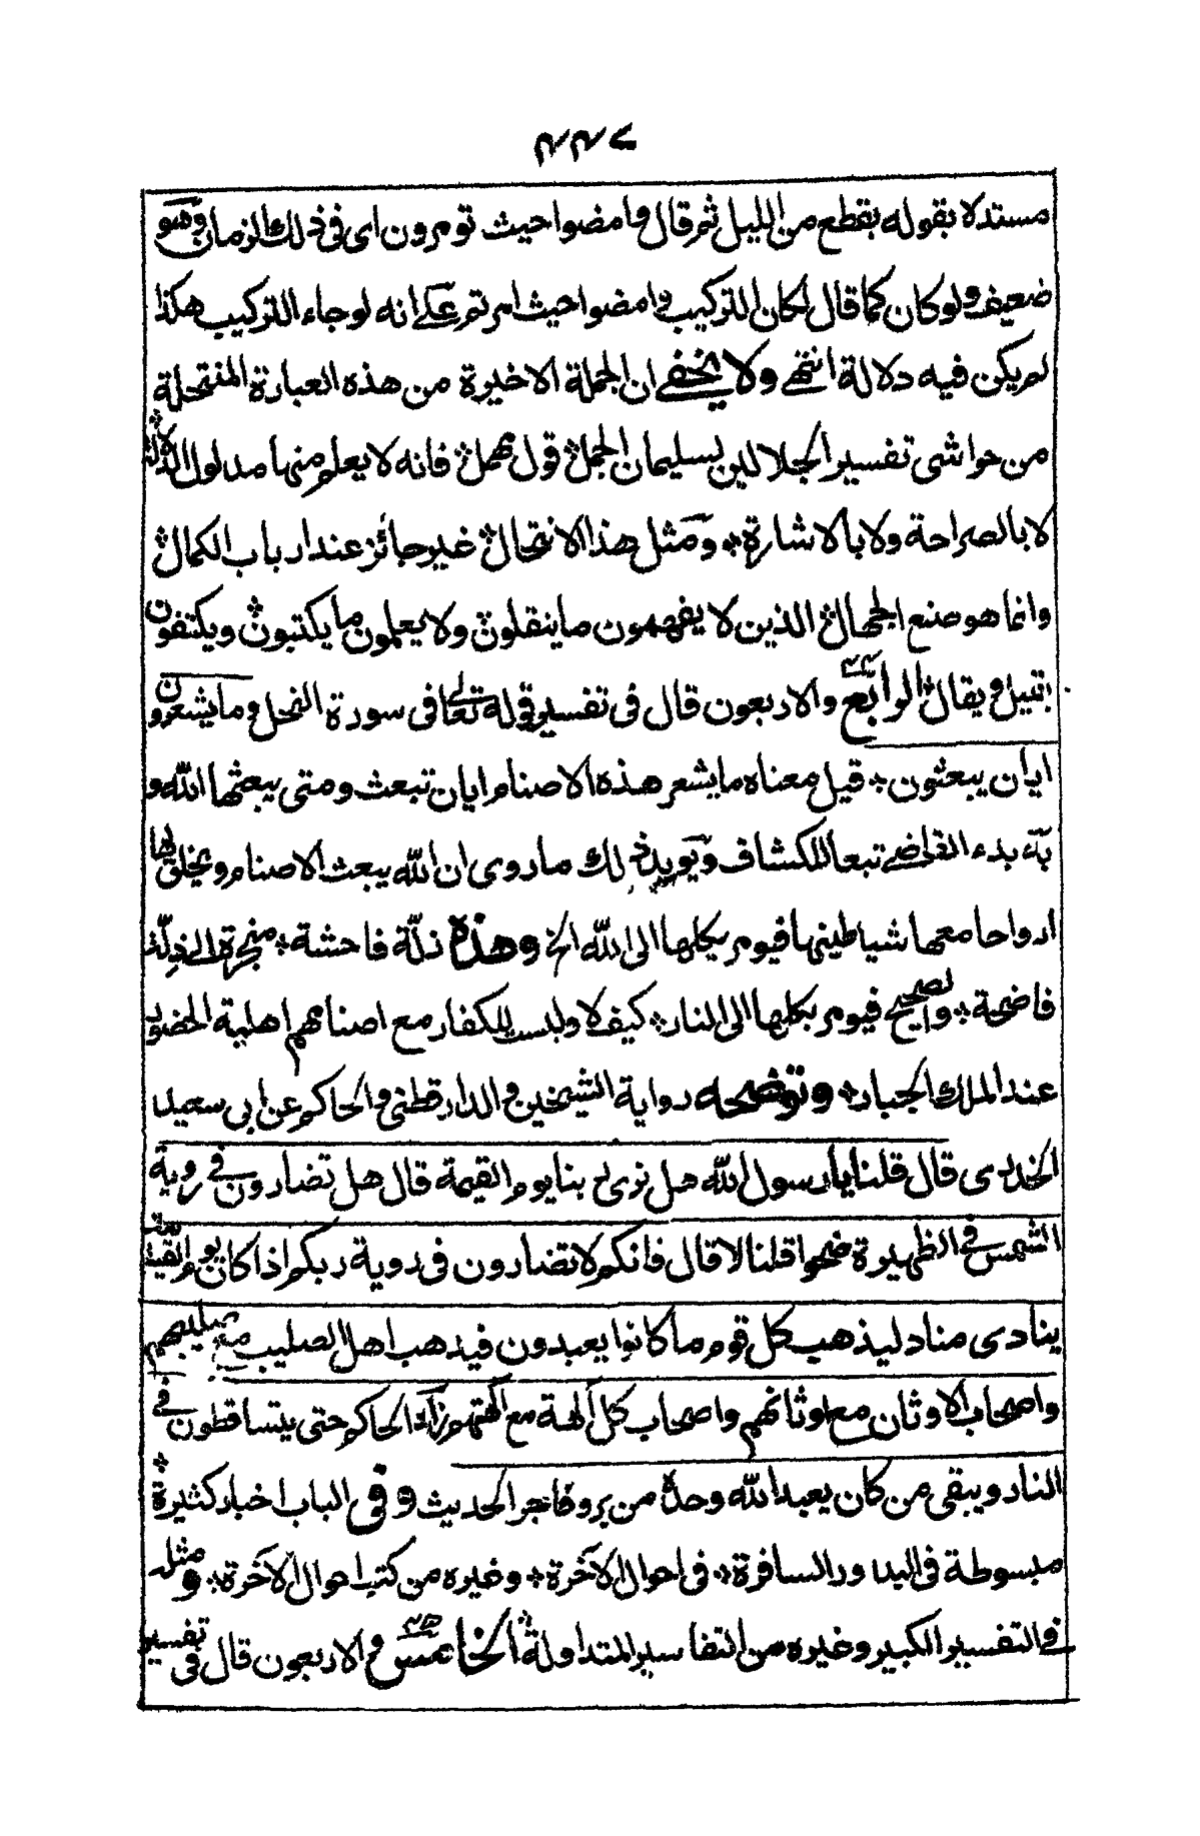 ۴۴۷
مستدلا بقوله بقطع من الليل ثم قال وامضوا حيث تومرون اى فى ذلك الزمان وهو
ضعيف ولو كان كما قال لكان التركيب وامضوا حيث امرتم على انه لو جاء التركيب هكذا
لم يكن فيه دلالة انتهى ولا يخفى ان الجملة الاخيرة من هذه العبارة المنتحلة
من حواشى تفسير الجلالين لسليمان الجمل قول مهمل فانه لا يعلم منها مدلول الدلالة
لا بالصراحة ولا بالاشارة ومثل هذا الانتحال غير جائز عند ارباب الكمال
وانما هو صنع الجهال الذين لا يفهمون ما ينقلون ولا يعلمون ما يكتبون ويكتفون
بقيل ويقال الرابع والاربعون قال فى تفسير قوله تعالى فى سورة النحل وما يشعرون
ايان يبعثون قيل معناه ما يشعر هذه الاصنام ايان تبعث ومتى يبعثها الله و
به بدء القاضى تبعا للكشاف ويويد ذلك ما روى ان الله يبعث الاصنام ويخلق لها
ارواحا معها شياطينها فيوم يكلها الى الله الخ وهذه زلة فاحشة منجرة الى ذلة
فاضحة والصحيح فيوم بكلها الى النار كيف لا وليس للكفار مع اصنامهم اهلية الحضور
عند الملك الجبار وتوضحه رواية الشيخين والدارقطنى والحاكم عن ابى سعيد
الخدرى قال قلنا يا رسول الله هل نرى ربنا يوم القيمة قال هل تضارون فى روية
الشمس فى الظهيرة ضحوا قلنا لا قال فانكم لا تضارون فى روية ربكم اذا كان يوم القيمة
ينادى مناد ليذهب كل قوم ما كانوا يعبدون فيذهب اهل الصليب مع صليبهم
واصحاب الاوثان مع اوثانهم واصحاب كل آلهة مع آلهتهم زاد الحاكم حتى يتساقطون فى
النار ويبقى من كان يعبد الله وحده من بر وفاجر الحديث وفى الباب اخبار كثيرة
مبسوطة فى البدور السافرة فى احوال الآخرة وغيره من كتب احوال الآخرة ومثله
فى التفسير الكبير وغيره من التفاسير المتداولة الخامس والاربعون قال فى تفسير